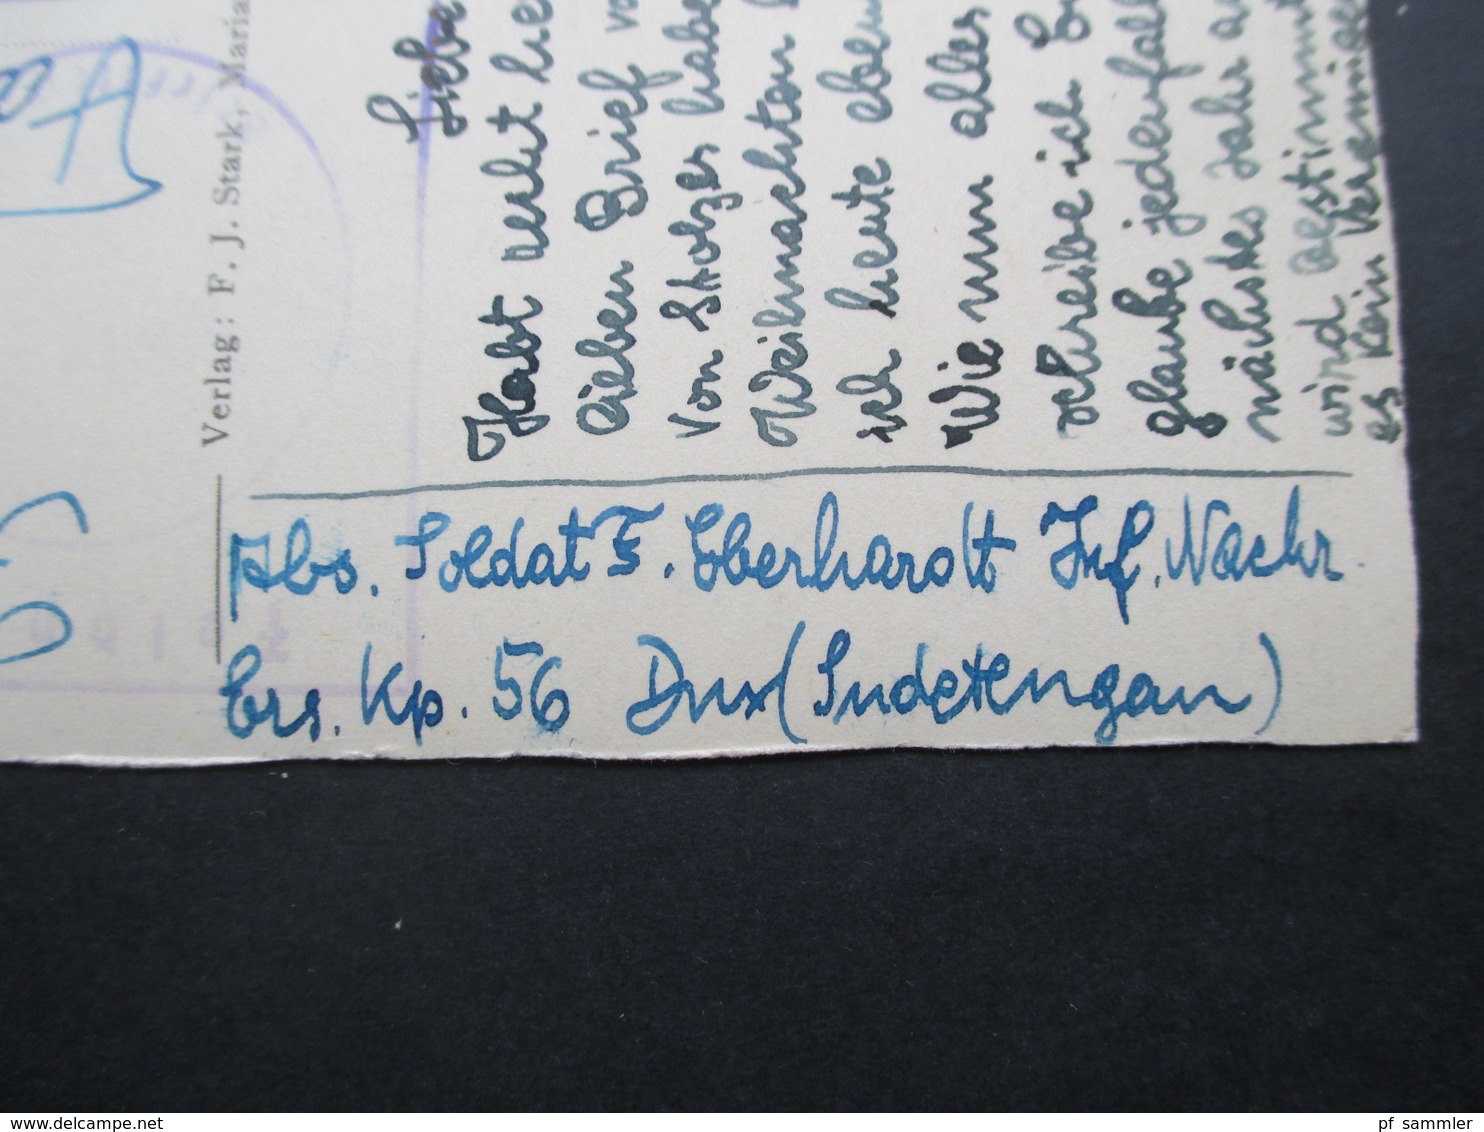 Verlag: F. J. Stark, Maria
Liebe
Habt recht
lieben Brief
von Stolzer habe
Weihnachten
ich heute eben
Wie nun alles
schreibe ich
glaube jedenfall
nächstes Jahr
wird bestimmt
es kein
Abs. Soldat F. Eberhardt Inf. Nachr.
Ers. Kp. 56 Dux (Sudetengau)
pf_sammler